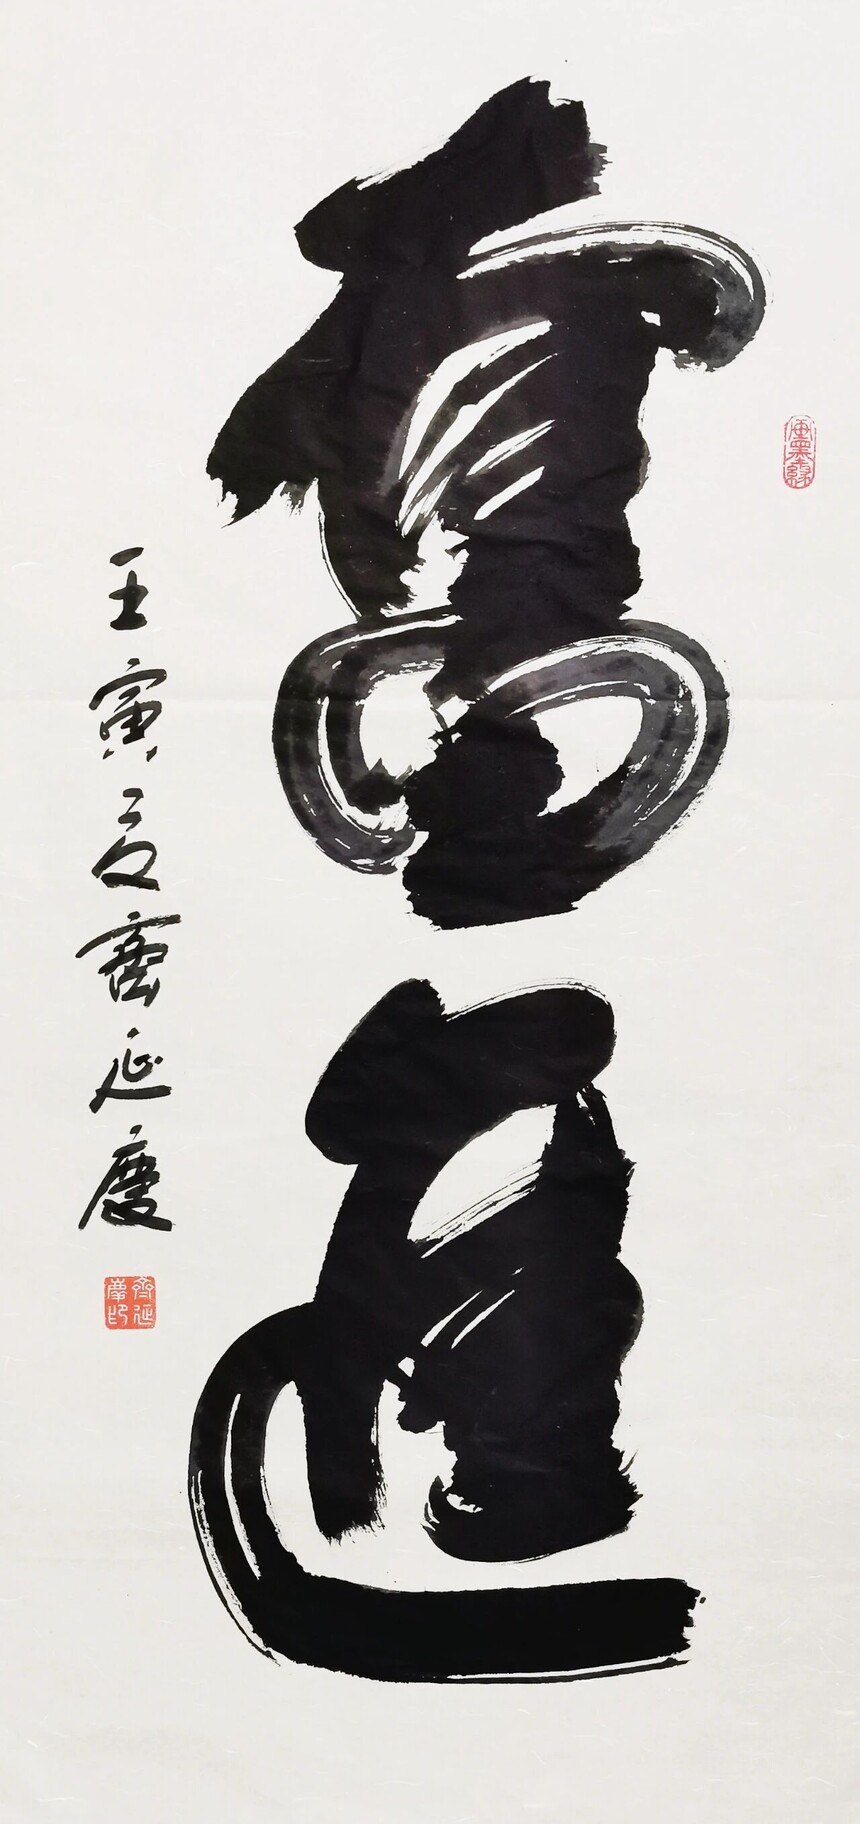 奮進
壬寅夏齊延慶
齊延慶印